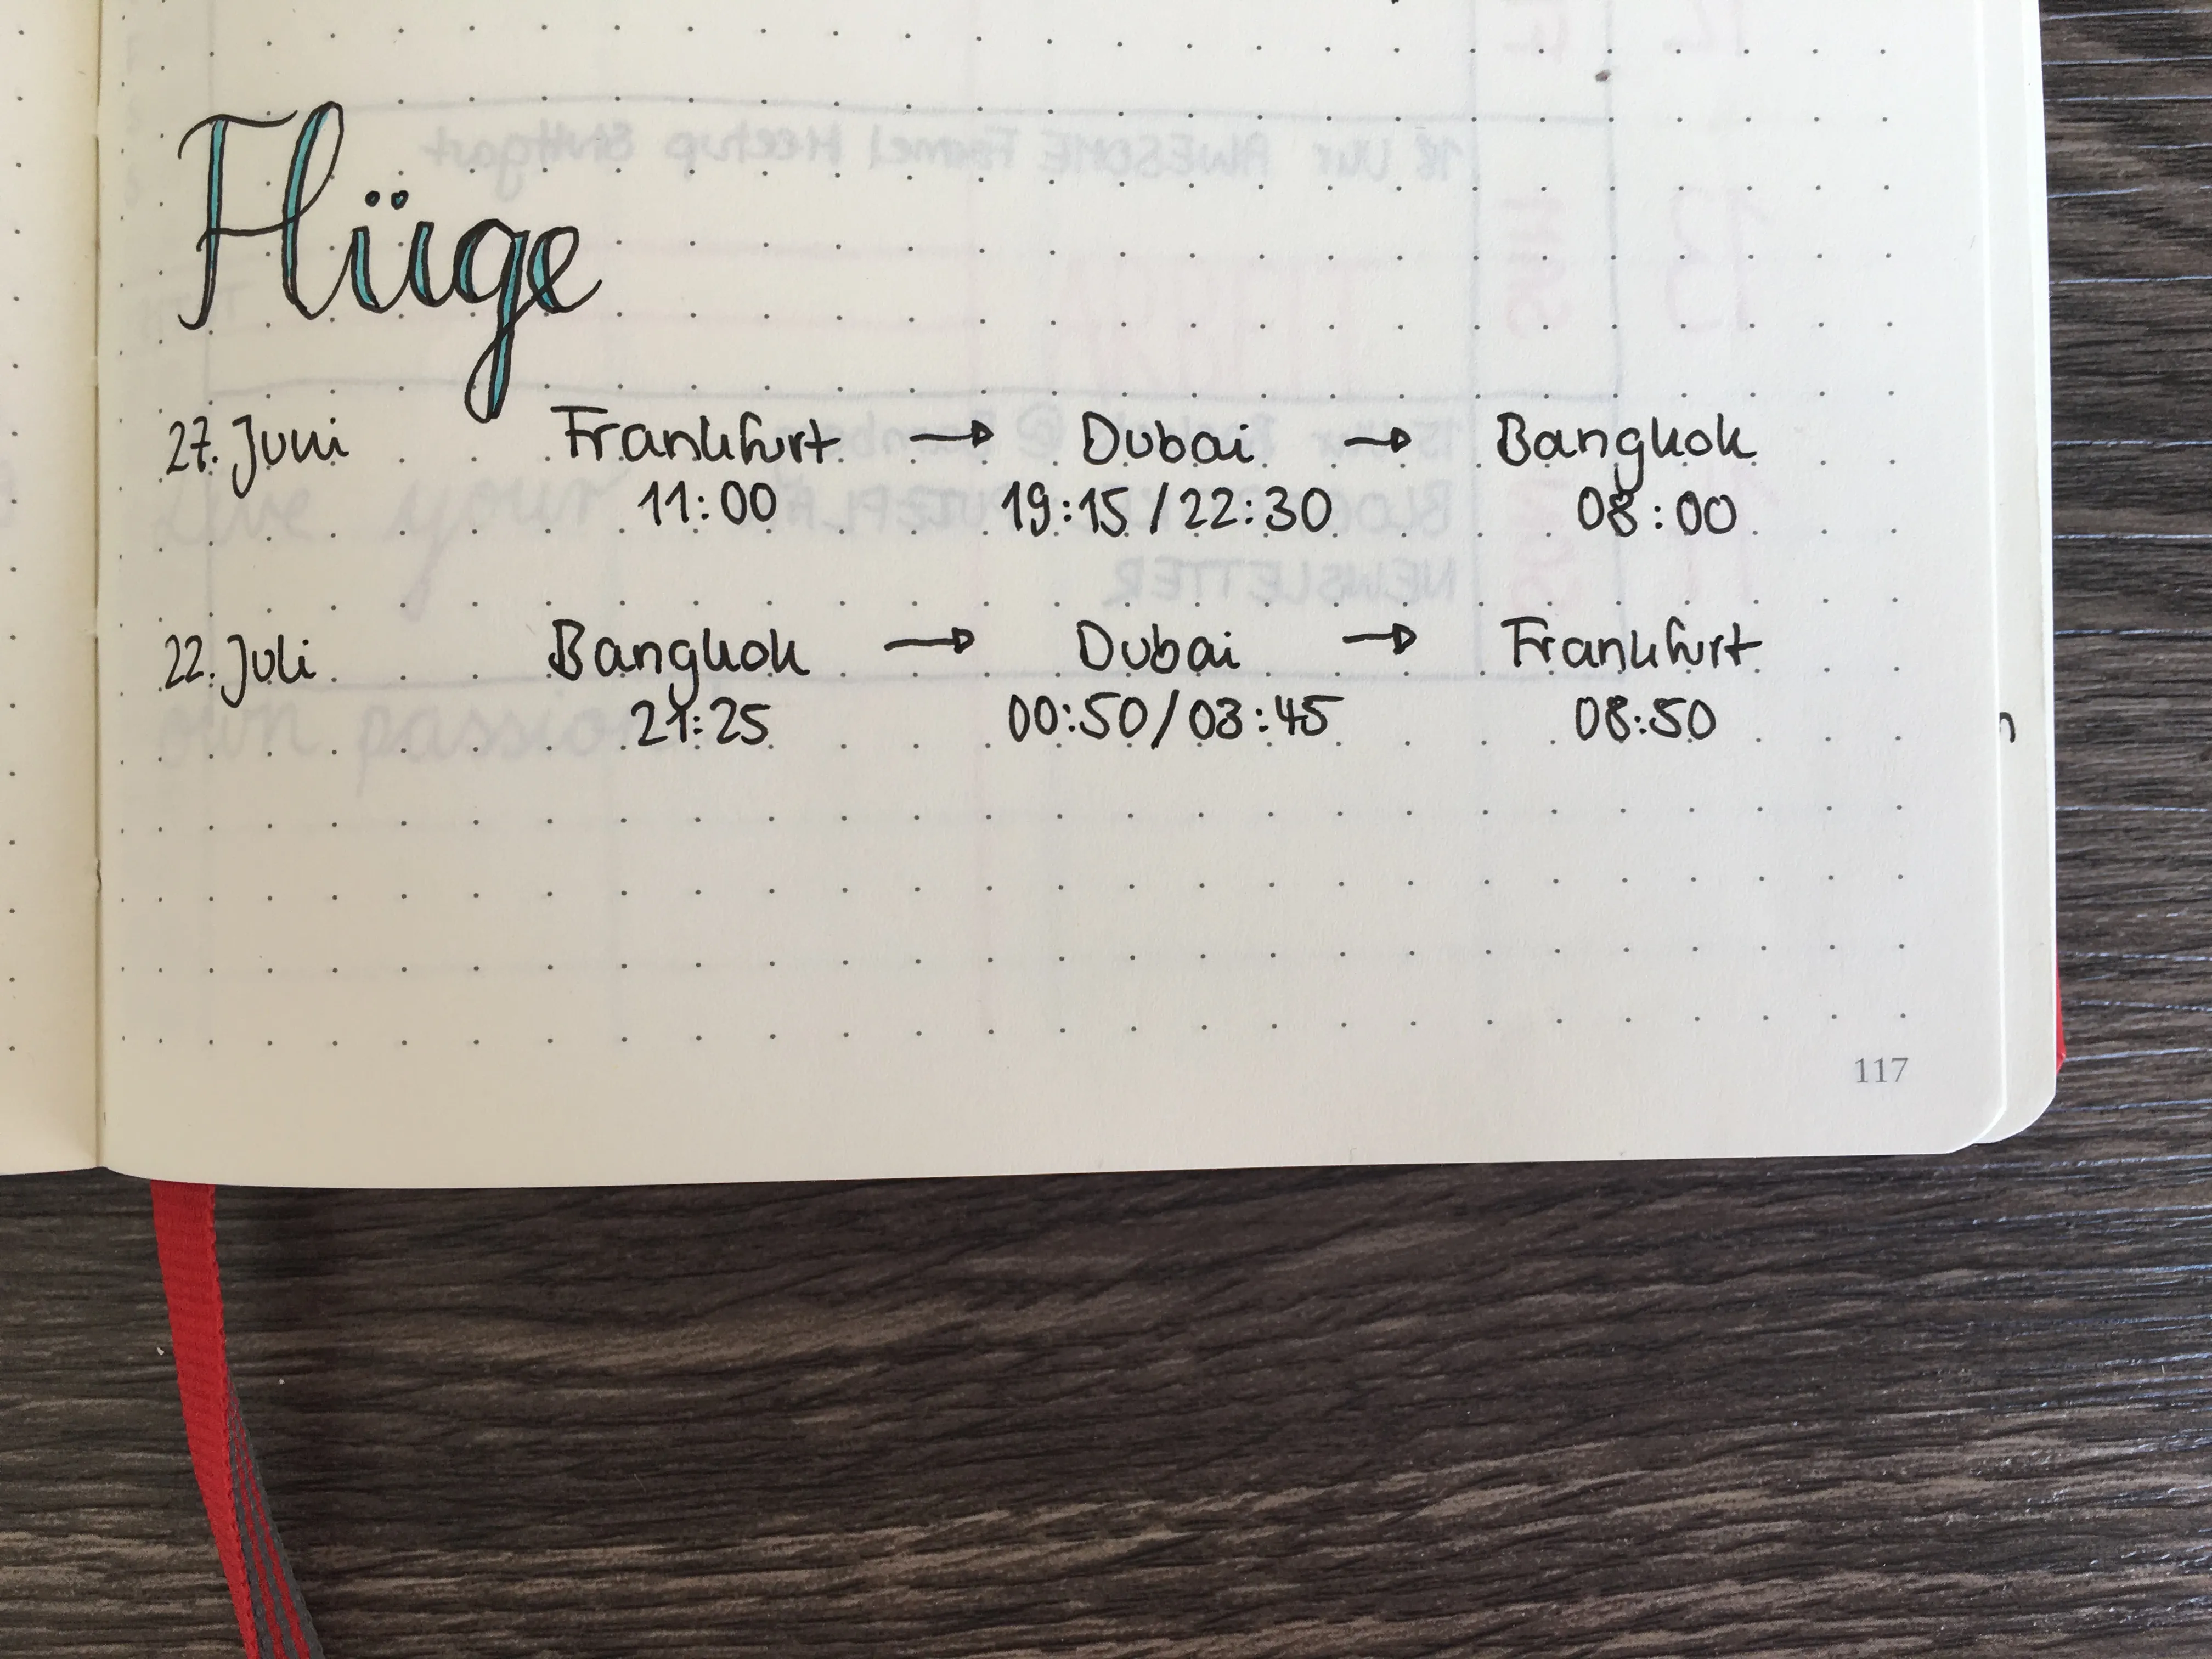 Flüge
27. Juni Frankfurt → Dubai → Bangkok
11:00 19:15 / 22:30 08:00
22. Juli Bangkok → Dubai → Frankfurt
21:25 00:50 / 03:45 08:50
117